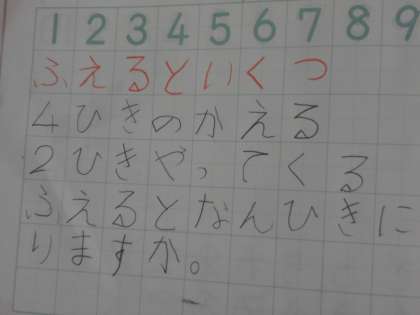 1 2 3 4 5 6 7 8 9
ふえるといくつ
4ひきのかえる
2ひきやってくる
ふえるとなんひきに
りますか。